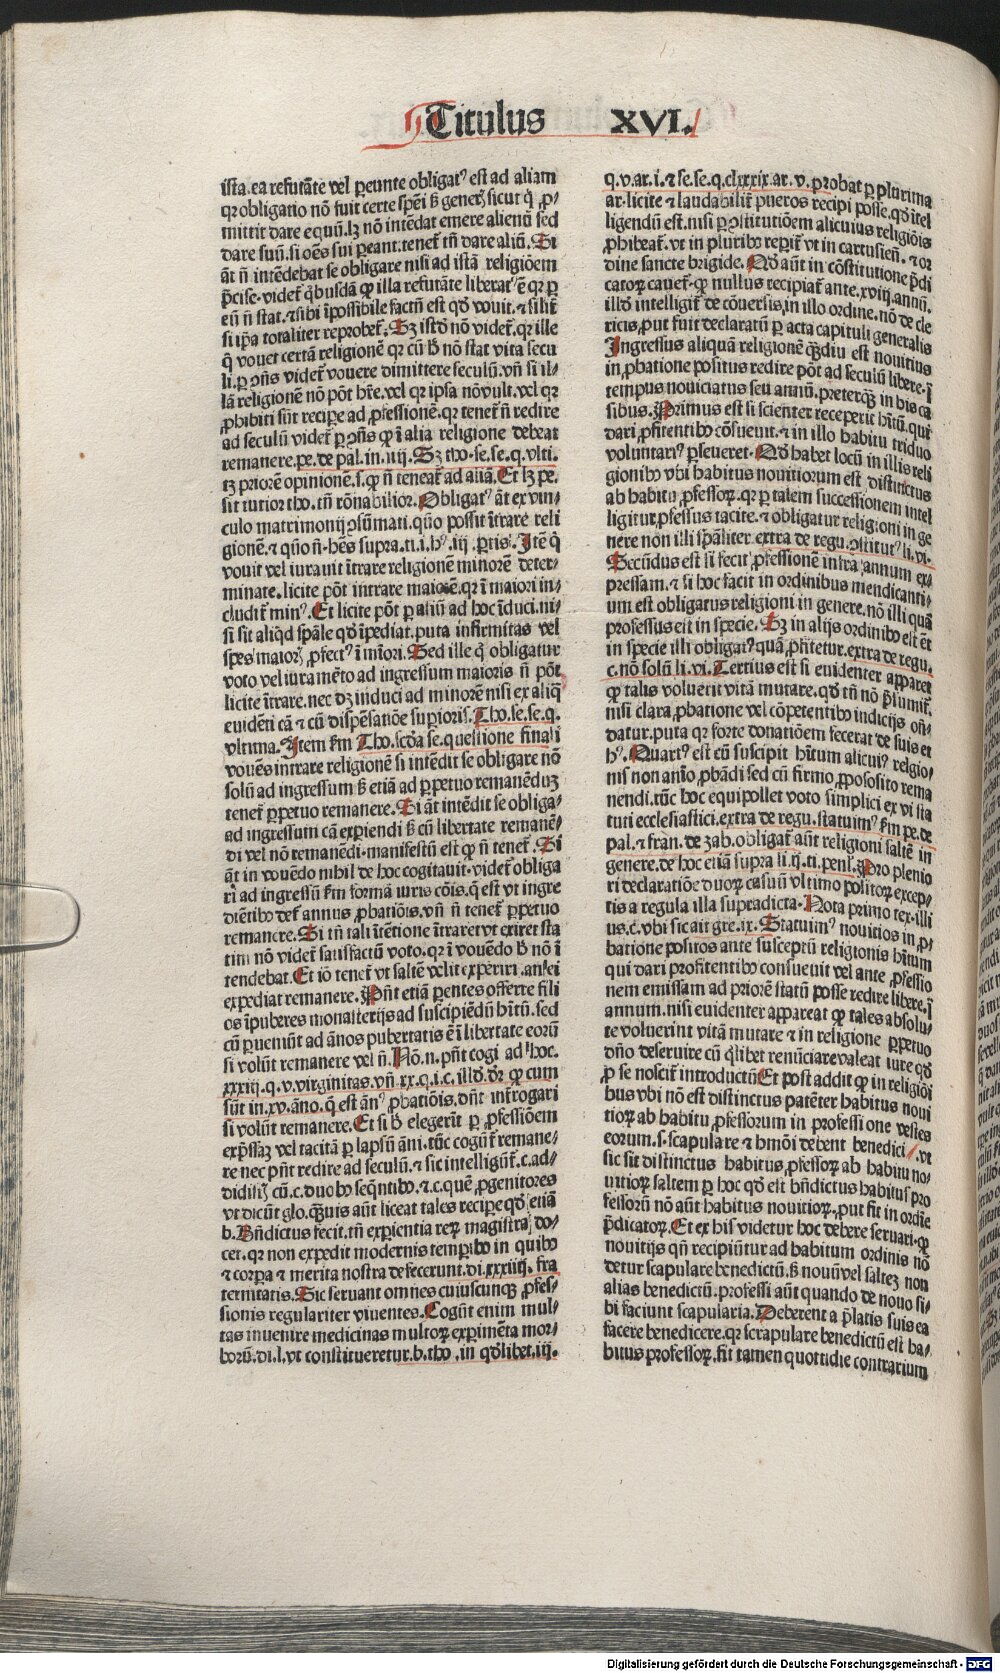 Titulus XVI.
ista. ea refutãte vel ꝑeunte obligatꝰ est ad aliam
qꝛ obligatio nõ fuit certe spẽi sꝫ generꝭ sicut ꝗ ꝓ-
mittit dare equũ. lꝫ nõ intẽdat emere alienũ sed
dare suũ. si oẽs sui ꝑeant. tenet̃ tñ dare aliũ. Si
ãt ñ intẽdebat se obligare nisi ad istã religiõem
p̃cise. videt̃ ꝗbusdã ꝙ illa refutãte liberatꝰ ẽ qꝛ ꝑ
eũ ñ stat. ⁊ sibi ĩpossibile factũ est qď vouit. ⁊ sil̃it̃
si ip̃a totaliter reprobet̃. Sꝫ istď nõ videt̃. qꝛ ille
ꝗ vouet certã religionẽ qꝛ cũ ꝉ nõ stat vita secu
li. ꝑ ↄ̃ns videt̃ vouere dimittere seculũ. vñ si il-
lã religionẽ nõ põt hr̃e. vel qꝛ ipsa nõ vult. vel qꝛ
ꝓhibiti sũt recipe ad ꝓfessionẽ. qꝛ tenet̃ ñ redire
ad seculũ videt̃ ꝑ ↄ̃ns ꝙ ĩ alia religione debeat
remanere. pe. de pal. in .iiij. Sꝫ tho. se. se. q. vlti.
tꝫ priorẽ opinionẽ. s. ꝙ ñ teneat̃ ad aliã. Et lꝫ pe.
sit tutior tho. tñ rõnabilior. Obligatꝰ ãt ex vin-
culo matrimonij ↄsũmati. quõ possit ĩtrare reli
gionẽ. ⁊ quõ ñ. hẽs supra. ti. i. hꝰ. iij. ꝑtis. Itẽ ꝗ
vouit vel iurauit ĩtrare religionẽ minorẽ deter-
minate. licite põt intrare maiorẽ. qꝛ ĩ maiori in-
cludit̃ minꝰ. Et licite põt ꝑ aliũ ad hoc ĩduci. ni-
si sit aliqď sp̃ale qď ĩpediat. puta infirmitas vel
spes maiorꝭ ꝓfectꝰ ĩ mĩori. Sed ille ꝗ obligatur
voto vel iuramẽto ad ingressum maioris ñ põt
licite ĩtrare. nec dꝫ induci ad minorẽ nisi ex aliq̃
euidẽti cã ⁊ cũ dispẽsatiõe supioris. Tho. se. se. q.
vltima. Item fm̃ Tho. scďa se. questione finali
vouẽs intrare religionẽ si intẽdit se obligare nõ
solũ ad ingressum sꝫ etiã ad ꝑpetuo remanẽduꝫ
tenet̃ ꝑpetuo remanere. Si ãt intẽdit se obliga-
ad ingressum cã exꝑiendi sꝫ cũ libertate remanẽ-
di vel nõ remanẽdi. manifestũ est ꝙ ñ tenet̃. Si
ãt in vouẽdo nihil de hoc cogitauit. videt̃ obliga
ri ad ingressũ fm̃ formã iuris cõis. q̃ est vt ingre
diẽtibꝫ det̃ annus ꝓbatiõis. vñ ñ tenet̃ ꝑpetuo
remanere. Si tñ tali ĩtẽtione ĩtraret vt exiret sta
tim nõ videt̃ satisfactũ voto. qꝛ ĩ vouẽdo ꝉ nõ ĩ
tendebat. Et iõ tenet̃ vt saltẽ velit experiri. an sei
expediat remanere. Pñt etiã ꝑentes offerre fili
os ĩpuberes monasterijs ad suscipiẽdũ hĩtũ. sed
cũ ꝑueniũt ad ãnos pubertatis ẽ ĩ libertate eorũ
si volũt remanere vel ñ. Nõ. n. pñt cogi ad hoc.
xxxiij. q. v. virginitas. vñ xx. q. i. c. illď. ďr ꝙ cum
sũt in .xv. ãno. q̃ est ãnꝰ ꝓbatiõis. dñt inťrogari
si volũt remanere. Et si ꝉ elegerĩt ꝑ ꝓfessiõem
exp̃ssaꝫ vel tacitã ꝑ lapsũ ãni. tũc cogũt̃ remane-
re nec pñt redire ad seculũ. ⁊ sic intelligũt̃. c. ad-
didistꝭ cũ. c. duobꝫ seq̃ntibꝫ. ⁊ c. quẽ ꝓgenitores
vt dicũt glo. q̃uis aũt liceat tales recipe qď etiã
b. Bñdictus fecit. tñ exꝑientia reꝝ magistra do-
cet. qꝛ non expedit modernis temꝑibꝫ in quibꝫ
⁊ corꝑa ⁊ merita nostra defecerunt. di. xxxiiij. fra
ternitatis. Sic seruant omnes cuiuscunqꝫ ꝓfes-
sionis regulariter viuentes. Cogũt enim mul-
tas inuenire medicinas multoꝝ exꝑimẽta mor-
borũ. di. l. vt constitueretur. b. tho. in qďlibet. iij.
q. v. ar. i. ⁊ se. se. q. clxxxix. ar. v. probat ꝑ plurima
ar. licite ⁊ laudabilit̃ pueros recipi posse. qď ĩtel
ligendũ est. nisi ꝑ ↄstitutiõem alicuius religiõis
ꝓhibeat̃. vt in pluribꝫ reꝑit̃ vt in cartusieñ. ⁊ or
dine sancte brigide. Qď aũt in cõstitutione p̃di
catoꝝ cauet̃. ꝙ nullus recipiat̃ ante .xviij. annũ.
illď intelligit̃ de cõuersis, in illo ordine. nõ de cle
ricis, put fuit declaratũ ꝑ acta capituli generalis
Ingressus aliquã religionẽ q̃diu est nouitius
in ꝓbatione positus redire põt ad seculũ libere. ĩ
tempus nouiciatus seu annũ. preterq̃ in his ca
sibus. Primus est si scienter receperit hĩtũ. qui
dari ꝓfitentibꝫ cõsueuit. ⁊ in illo habitu triduo
voluntariꝰ ꝑseueret. Qď habet locũ in illis reli
gionibꝫ vbi habitus nouitiorum est distinctus
ab habitu ꝓfessoꝝ. qꝛ ꝑ talem successionem intel
ligitur ꝓfessus tacite. ⁊ obligatur religioni in ge
nere non illi sp̃aliter. extra de regu. ↄstitutꝰ li. vi.
Secũdus est si fecit ꝓfessionẽ infra annum ex-
pressam. ⁊ si hoc facit in ordinibus mendicanti-
um est obligatus religioni in genere. nõ illi quã
professus est in specie. Sꝫ in alijs ordinibꝫ est ẽt
in specie illi obligatꝰ quã ꝓfitetur. extra de regu.
c. nõ solũ li. vi. Tertius est si euidenter apparet
ꝙ talis voluerit vitã mutare. qď tñ nõ p̃sumit̃.
nisi clara ꝓbatione vel cõpetentibꝫ indicijs oñ-
datur. puta qꝛ forte donatiõem fecerat de suis et
hꝰ. Quartꝰ est cũ suscipit hĩtum alicuiꝰ relgio-
nis non anĩo ꝓbãdi sed cũ firmo ꝓposito rema
nendi. tũc hoc equipollet voto simplici ex vi sta
tuti ecclesiastici. extra de regu. statuimꝰ fm̃ pe. de
pal. ⁊ fran. de zab. obligat̃ aũt religioni saltẽ in
genere. de hoc etiã supra li. ij. ti. penl̃. Pro plenio
ri declaratiõe duoꝝ casuũ vltimo positoꝝ excep-
tis a regula illa supradicta. Nota primo tex. illi
us. c. vbi sic ait gre. ix. Statuimꝰ nouitios in ꝓ-
batione positos ante susceptũ religionis hĩtum
qui dari profitentibꝫ consueuit vel ante ꝓfessio
nem emissam ad priorẽ statũ posse redire libere. ĩ
annum. nisi euidenter appareat ꝙ tales absolu-
te voluerint vitã mutare ⁊ in religione ꝑpetuo
dño deseruire cũ ꝗlibet renũciare valeat iure qď
ꝓ se noscit̃ introductũ Et post addit ꝙ in religiõi
bus vbi nõ est distinctus patẽter habitus noui
tioꝝ ab habitu ꝓfessorum in professi one vestes
eorum. s. scapulare ⁊ hmõi debent benedici / vt
sic sit distinctus habitus ꝓfessoꝝ ab habitu no-
uitioꝝ saltem ꝑ hoc qď est bñdictus habitus pro
fessorũ nõ aũt habitus nouitioꝝ. put fit in ordiẽ
p̃dicatoꝝ. Et ex his videtur hoc debere seruari. ꝙ
nouitijs qñ recipiũtur ad habitum ordinis nõ
detur scapulare benedictũ. sꝫ nouũ vel saltẽꝫ non
alias benedictũ. professi aũt quando de nouo si-
bi faciunt scapularia. Deberent a p̃latis suis ea
facere benedicere. qꝛ scrapulare benedictũ est ha-
bitus professoꝝ. fit tamen quottidie contrarium
Digitalisierung gefördert durch die Deutsche Forschungsgemeinschaft - DFG